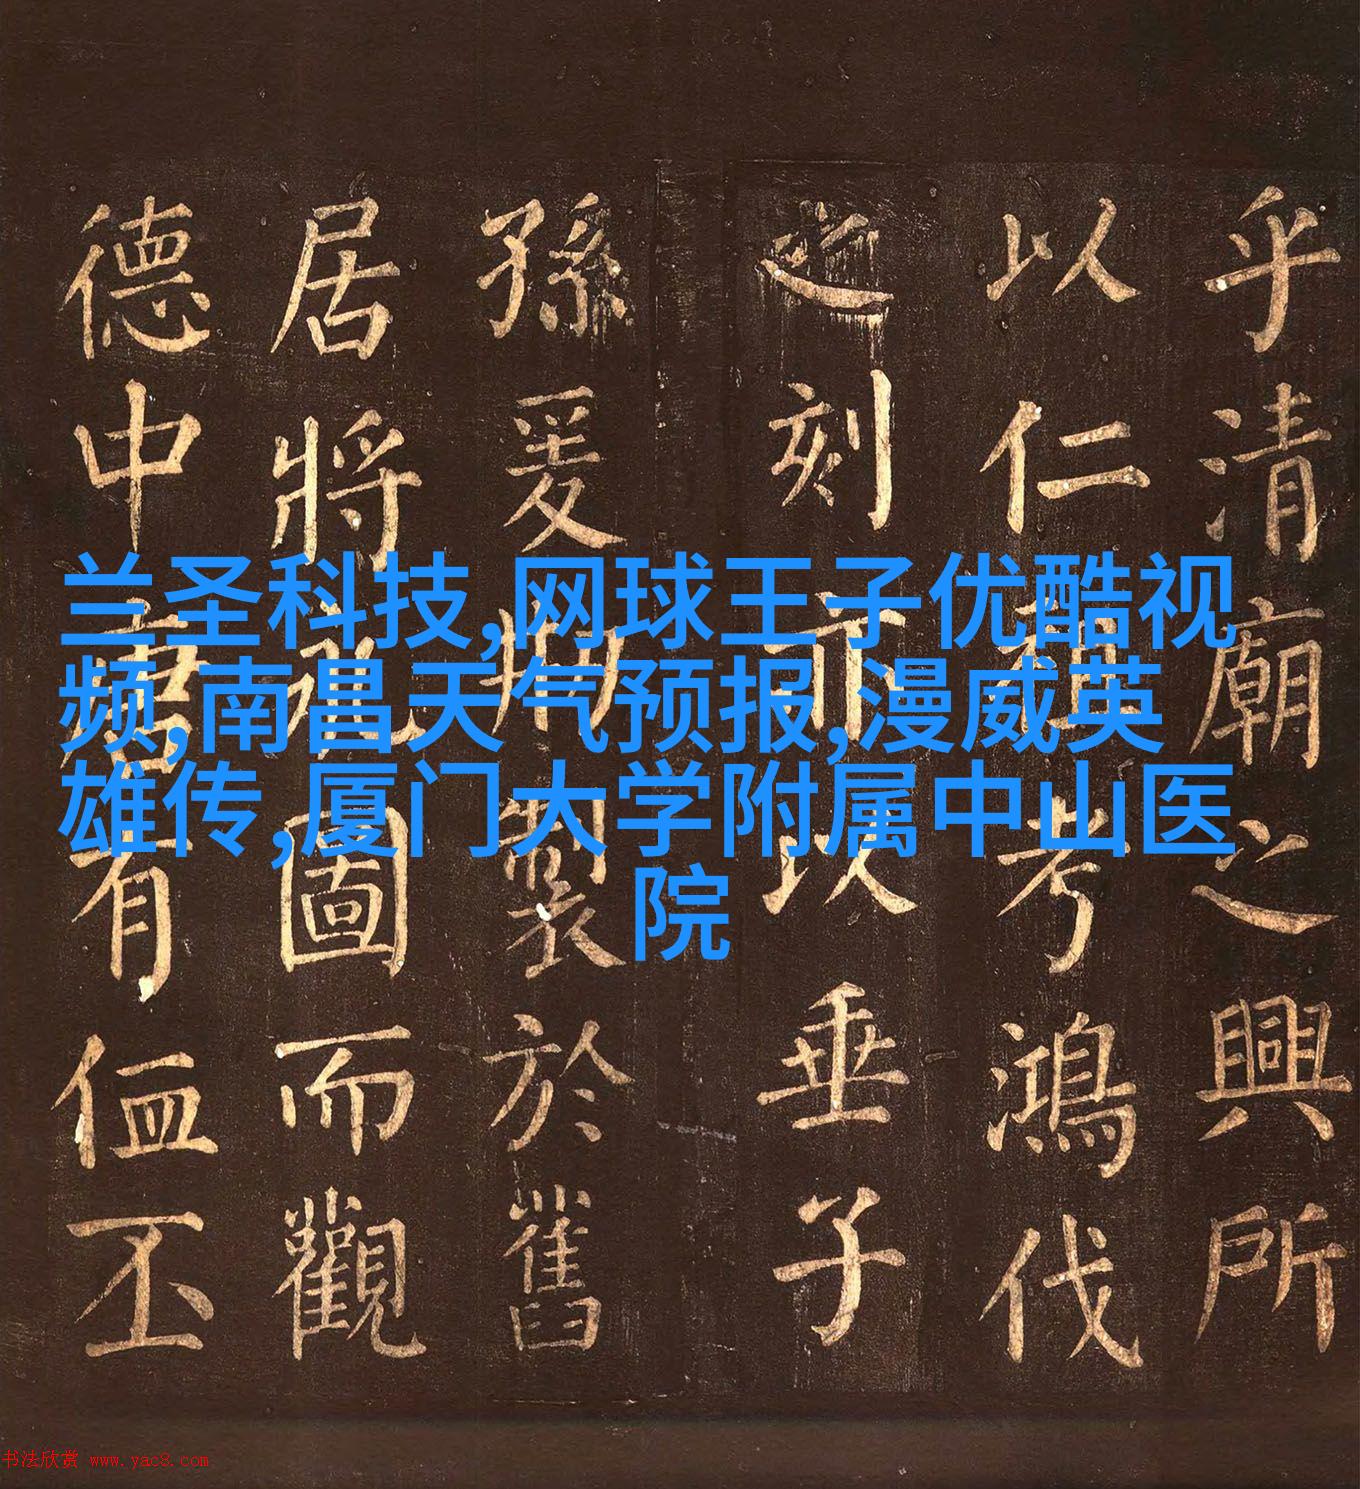 兰圣科技,网球王子优酷视
频,南昌天气预报,漫威英
雄传,厦门大学附属中山医
院
乎清廟之興所
以仁考鴻伐
之刻以垂子
孫爰製於舊
居將圖而觀
德中唐有侐丕
书法欣赏 www.yac8.com